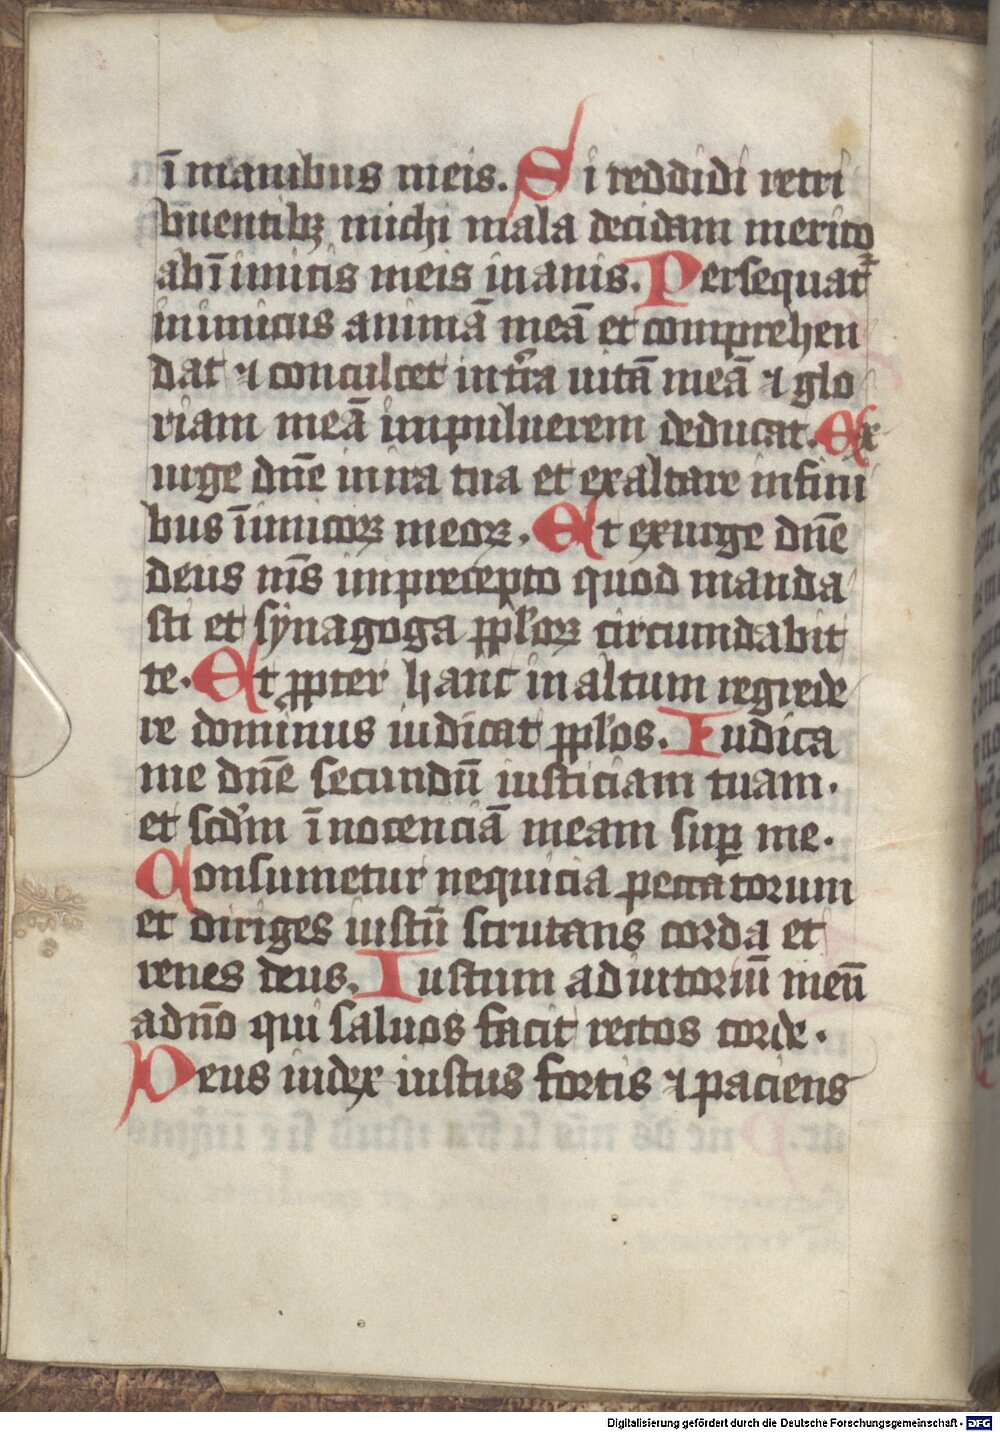 ī manibus meis. Si reddidi retri
buentibꝫ michi mala decidam merito
ab īimicis meis inanis. Persequatᷣ
inimicus animā meā et comprehen
dat ⁊ conculcet in tr̄ra uitā meā ⁊ glo
riam meā impuluerem deducat. Ex
urge dn̄e inira tua et exaltare infini
bus īimicoꝝ meoꝝ. Et exurge dn̄e
deus nr̄s imprecepto quod manda
sti et synagoga ppl'oꝝ circumdabit
te. Et ꝓpter hanc in altum regrede
re dominus iudicat ppl'os. Iudica
me dn̄e secundū iusticiam tuam.
et scd'm īnocenciā meam suꝑ me.
Consumetur nequicia peccatorum
et diriges iustū scrutans corda et
renes deus. Iustum adiutoriū meū
adn̄o qui saluos facit rectos corde.
Deus iudex iustus fortis ⁊ paciens
Digitalisierung gefördert durch die Deutsche Forschungsgemeinschaft - DFG